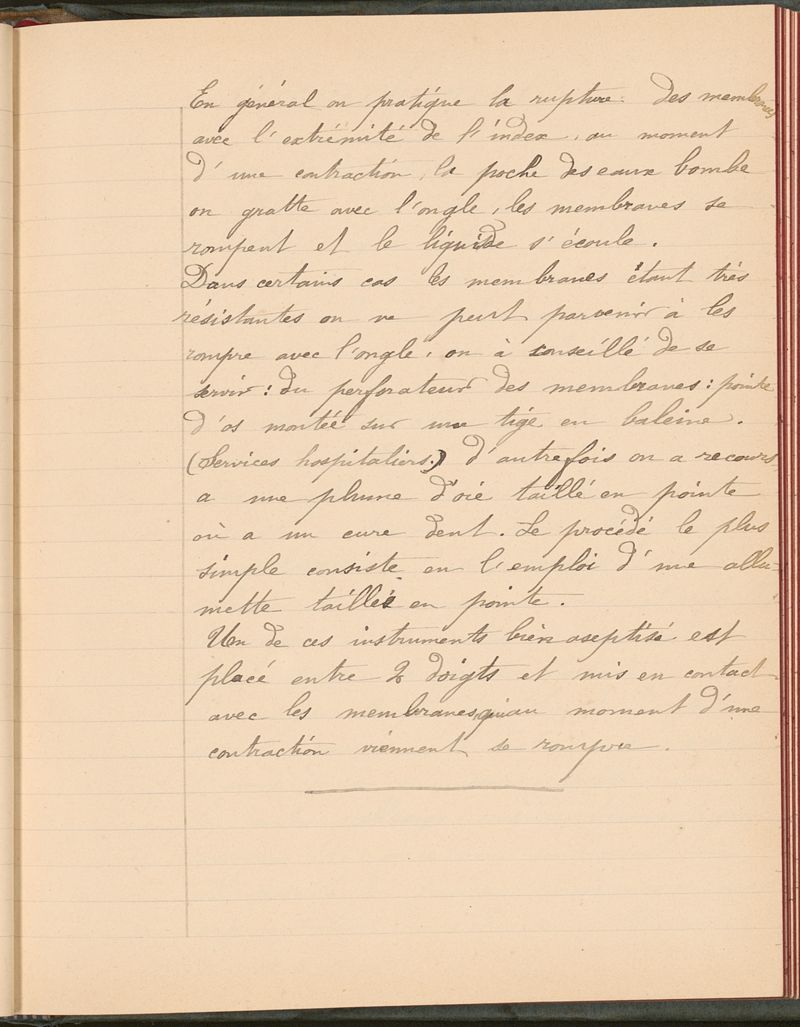 En général on pratique la rupture des membranes
avec l'extrémité de l'index, au moment
d'une contraction, la poche des eaux bombe
on gratte avec l'ongle, les membranes se
rompent et le liquide s'écoule.
Dans certains cas les membranes étant très
résistantes on ne peut parvenir à les
rompre avec l'ongle, on à conseillé de se
servir : du perforateur des membranes : pointe
d'os montée sur une tige en baleine.
(Services hospitaliers.) d'autrefois on a recours
a une plume d'oie taillé en pointe
où a un cure dent. Le procédé le plus
simple consiste en l'emploi d'une allu-
mette taillée en pointe.
Un de ces instruments bien aseptisé est
placé entre 2 doigts et mis en contact
avec les membranes qui au moment d'une
contraction viennent se rompre.